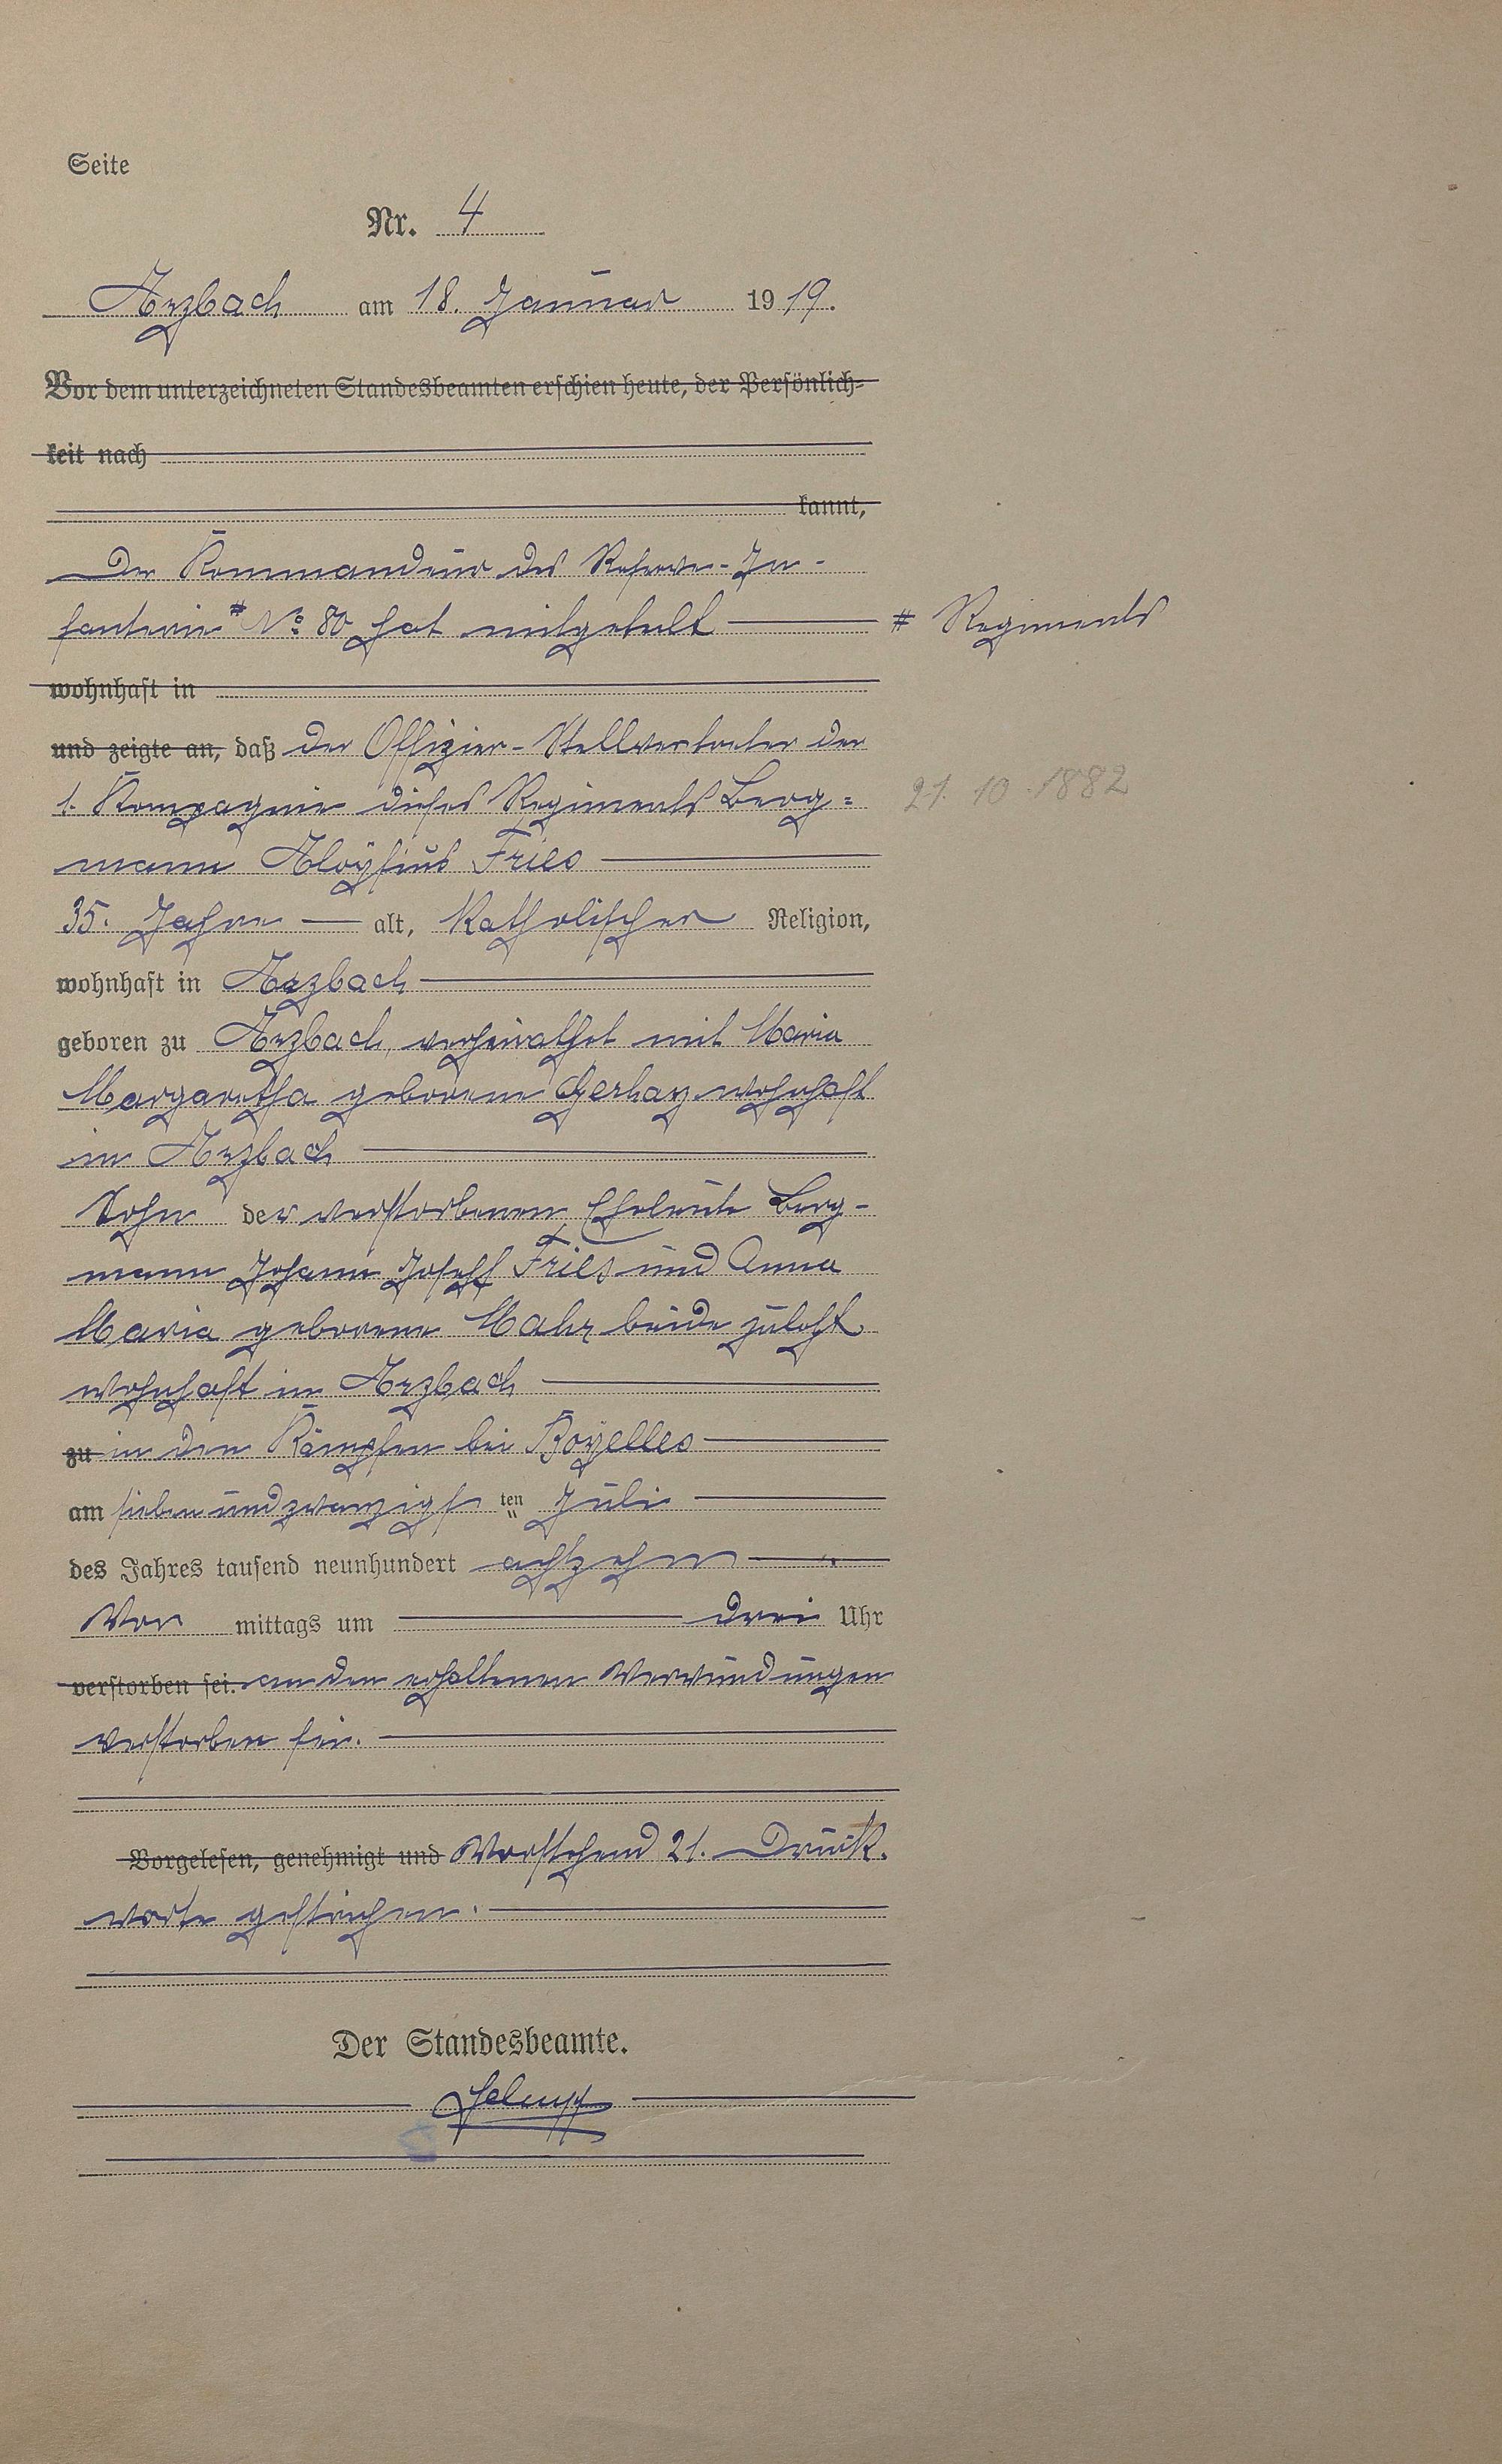 Seite
Nr. 4
Arzbach am 18. Januar 1919.
Vor dem unterzeichneten Standesbeamten erschien heute, der Persönlich-
keit nach
kannt,
Der Kommandeur des Reserve-In-
fanterie # No 80 hat mitgeteilt
# Regiments
wohnhaft in
und zeigte an, daß der Offizier-Stellvertreter der
1. Kompagnie dieses Regiments Berg-
21. 10. 1882
mann Aloysius Fries
35. Jahre alt, Katholischer Religion,
wohnhaft in Arzbach
geboren zu Arzbach, verheirathet mit Maria
Margaretha geborene Gerharz wohnhaft
in Arzbach
Sohn der verstorbenen Eheleute Berg-
mann Johann Joseph Fries und Anna
Maria geborene Mahr beide zuletzt
wohnhaft in Arzbach
zu in den Kämpfen bei Boyelles
am siebenundzwanzigsten Juli
des Jahres tausend neunhundert achtzehn
Vor mittags um drei Uhr
verstorben sei. an den erhaltenen Verwundungen
verstorben sei.
Vorgelesen, genehmigt und Vorstehend 21. Druck-
worte gestrichen.
Der Standesbeamte.